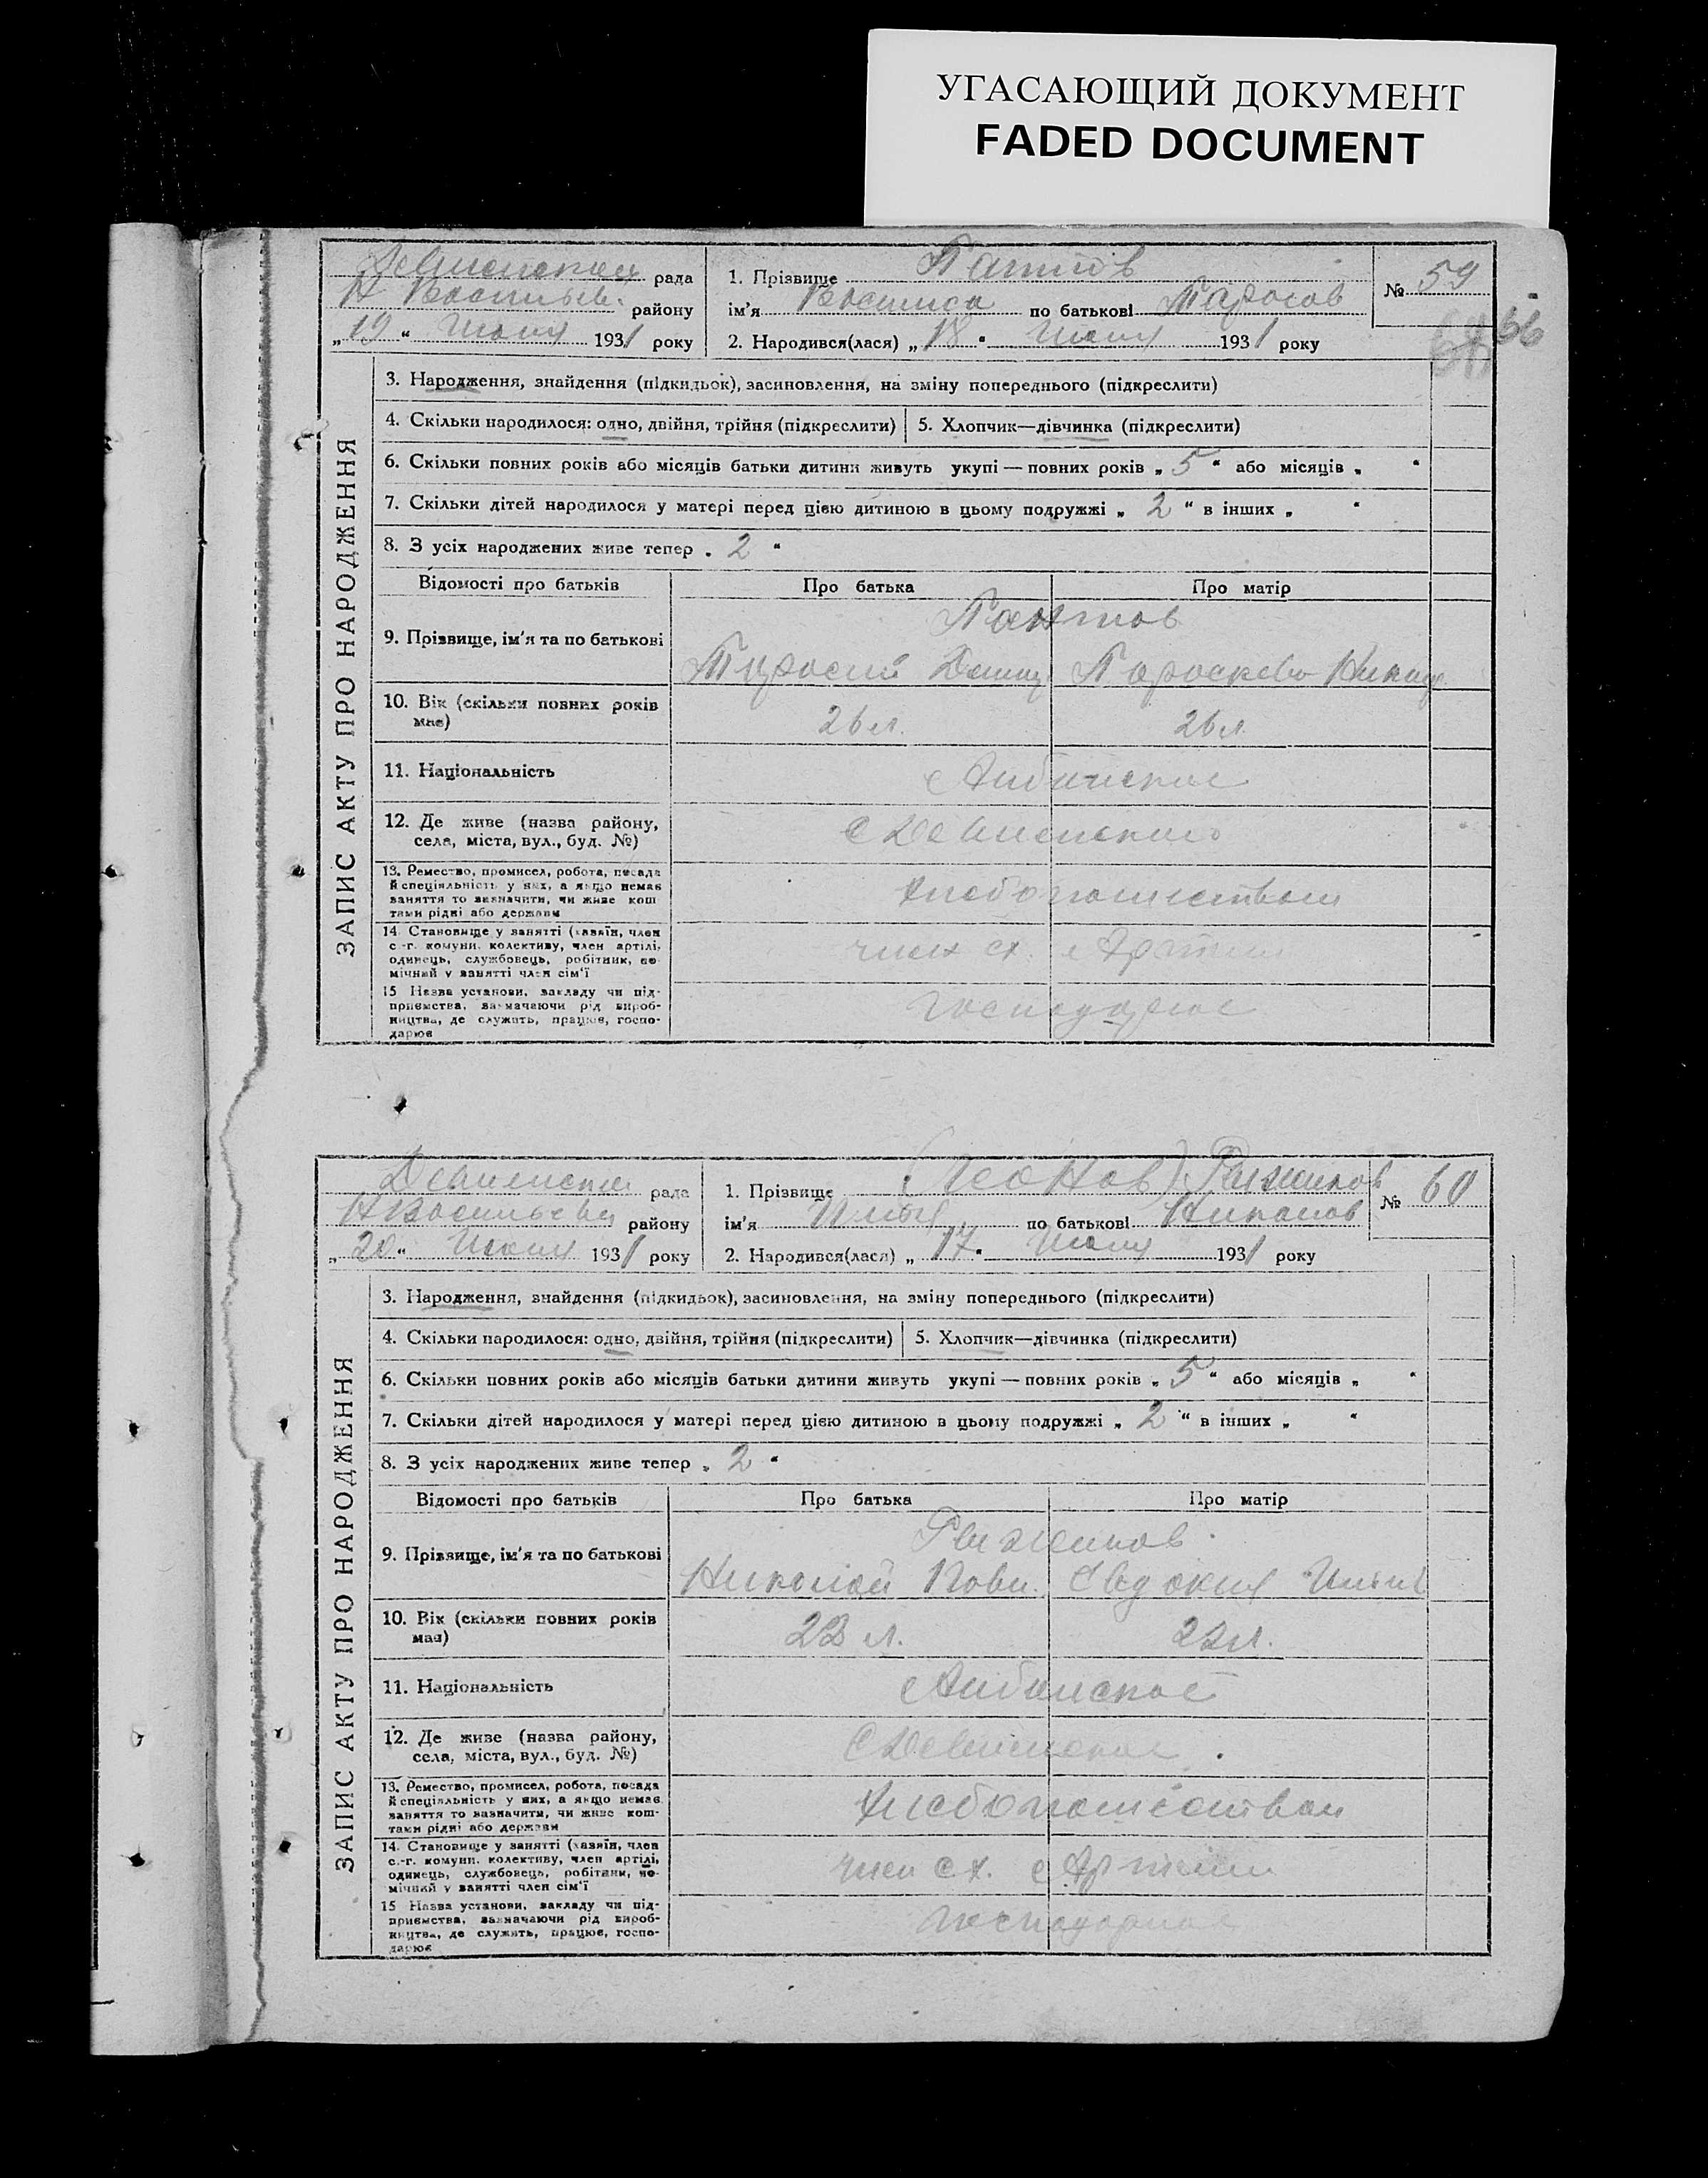 УГАСАЮЩИЙ ДОКУМЕНТ
FADED DOCUMENT
ЗАПИС АКТУ ПРО НАРОДЖЕННЯ
Девненской рада
Н Васильев. району
„19“ Июля 1931 року
1. Прізвище Пантов
ім'я Василиса по батькові Тарасов
2. Народився(лася) „18“ Июля 1931 року
№ 59
66
3. Народження, знайдення (підкидьок), засиновлення, на зміну попереднього (підкреслити)
4. Скільки народилося: одно, двійня, трійня (підкреслити) 5. Хлопчик—дівчинка (підкреслити)
6. Скільки повних років або місяців батьки дитини живуть укупі — повних років „5“ або місяців „ “
7. Скільки дітей народилося у матері перед цією дитиною в цьому подружжі „2“ в інших „ “
8. З усіх народжених живе тепер „2“
Відомості про батьків Про батька Про матір
9. Прізвище, ім'я та по батькові
Пантов
Тарасий Параскева
10. Вік (скільки повних років має)
26 л. 26 л
11. Національність
12. Де живе (назва району,
села, міста, вул., буд. №)
13. Ремество, промисел, робота, посада
й спеціяльність у них, а якщо немає
заняття то визначити, чи живе кош
тами рідні або держави
Хлебопашеством
14 Становище у занятті (хазяїн, член
с.-г. комуни, колективу, член артілі,
одинець, службовець, робітник, по-
мічний у занятті член сім'ї
член сх. Артели
15 Назва установи, закладу чи під-
приємства, вазначаючи рід вироб-
ництва, де служить, працює, госпо-
дарює
ЗАПИС АКТУ ПРО НАРОДЖЕННЯ
Девненской рада
Н Васильевки району
„20“ Июля 1931 року
1. Прізвище (Леонов) Рижиков
ім'я Илья по батькові Николаев
2. Народився(лася) „17“ Июля 1931 року
№ 60
3. Народження, знайдення (підкидьок), засиновлення, на зміну попереднього (підкреслити)
4. Скільки народилося: одно, двійня, трійня (підкреслити) 5. Хлопчик—дівчинка (підкреслити)
6. Скільки повних років або місяців батьки дитини живуть укупі — повних років „5“ або місяців „ “
7. Скільки дітей народилося у матері перед цією дитиною в цьому подружжі „2“ в інших „ “
8. З усіх народжених живе тепер „2“
Відомості про батьків Про батька Про матір
9. Прізвище, ім'я та по батькові
Рижиков
Николай Павл. Евдокия
10. Вік (скільки повних років має)
23 л. 22 л.
11. Національність
12. Де живе (назва району,
села, міста, вул., буд. №)
13. Ремество, промисел, робота, посада
й спеціяльність у них, а якщо немає
заняття то вазначити, чи живе кош-
тами рідні або держави
Хлебопашеством
14. Становище у занятті (хазяїн, член
с.-г. комуни, колективу, член артілі,
одинець, службовець, робітник, по-
мічний у занятті член сім'ї
член сх. Артели
15 Назва установи, закладу чи під-
приємства, вазначаючи рід вироб-
ництва, де служить, працює, госпо-
дарює